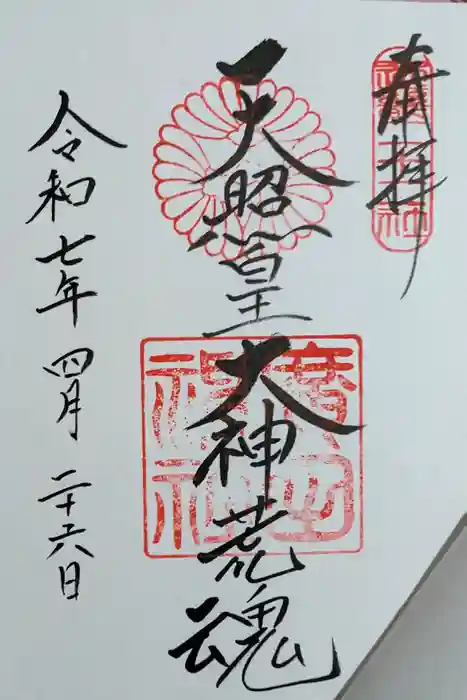 奉拝
天照皇大神荒魂
廣田神社
令和七年四月二十六日